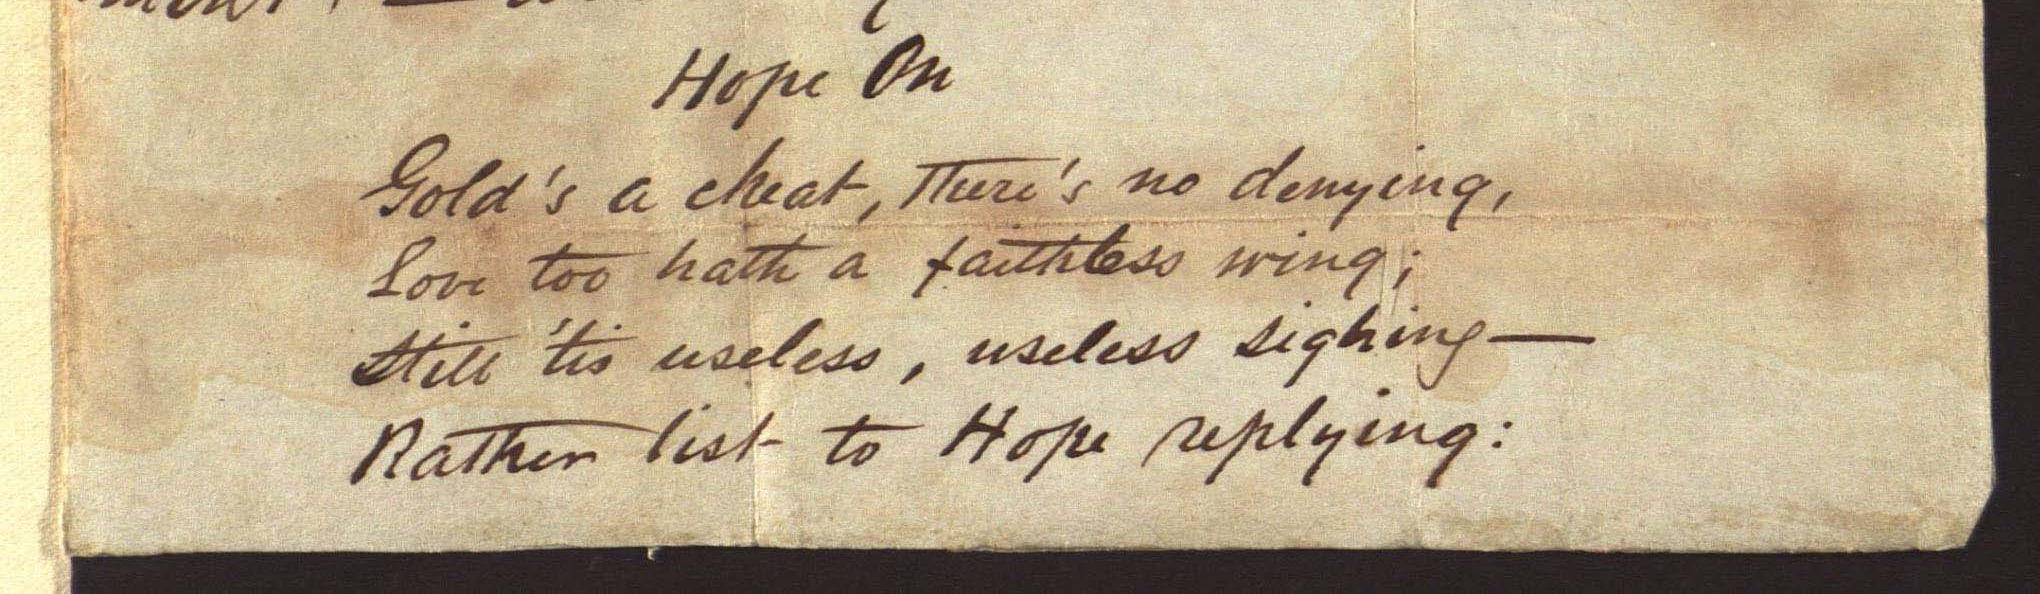 Hope On
Gold's a cheat, There's no denying,
Love too hath a faithless wing;
Still 'tis useless, useless sighing—
Rather list to Hope replying: